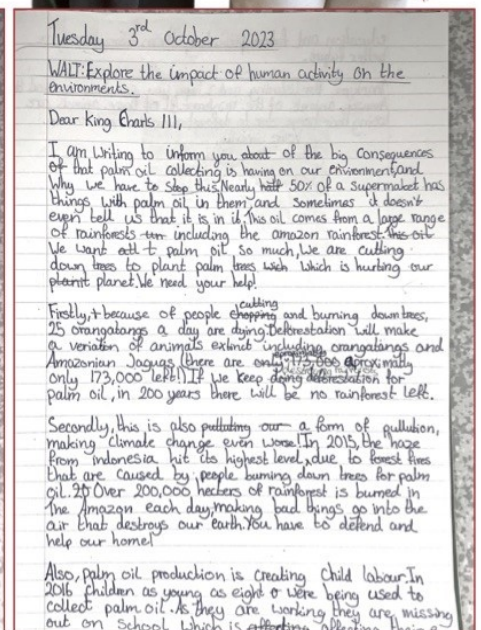 Tuesday 3rd October 2023
WALT: Explore the impact of human activity on the
environments.
Dear King Charls III,
I am writing to inform you about of the big consequences
of that palm oil collecting is having on our environment,and
Why we have to stop this.Nearly half 50% of a supermaket has
things with palm oil in them,and sometimes it doesn't
even tell us that it is in it.This oil comes from a large range
of rainforests including the amazon rainforest.This oil
We want palm oil so much,We are cutting
down trees to plant palm trees wich which is hurting our
planit planet.We need your help!
cutting
Firstly, because of people chopping and burning down trees,
25 orangatangs a day are dying.Deforestation will make
a variation of animals exlinct including orangatangs and
Amazonian Jaguas (there are only 173,000 aproximitly
only 173,000 left!).If we keep doing deforestation for
palm oil, in 200 years there will be no rainforest left.
Secondly, this is also pulluting our a form of pullution,
making climate change even worse!In 2015, the haze
from indonesia hit its highest level,due to forest fires
that are caused by people burning down trees for palm
oil.20 Over 200,000 hecters of rainforest is burned in
the Amazon each day,making bad things go into the
air that destroys our earth.You have to defend and
help our home!
Also, palm oil production is creating Child labour.In
2016 children as young as eight were being used to
collect palm oil.As they are working they are missing
out on School which is affecting